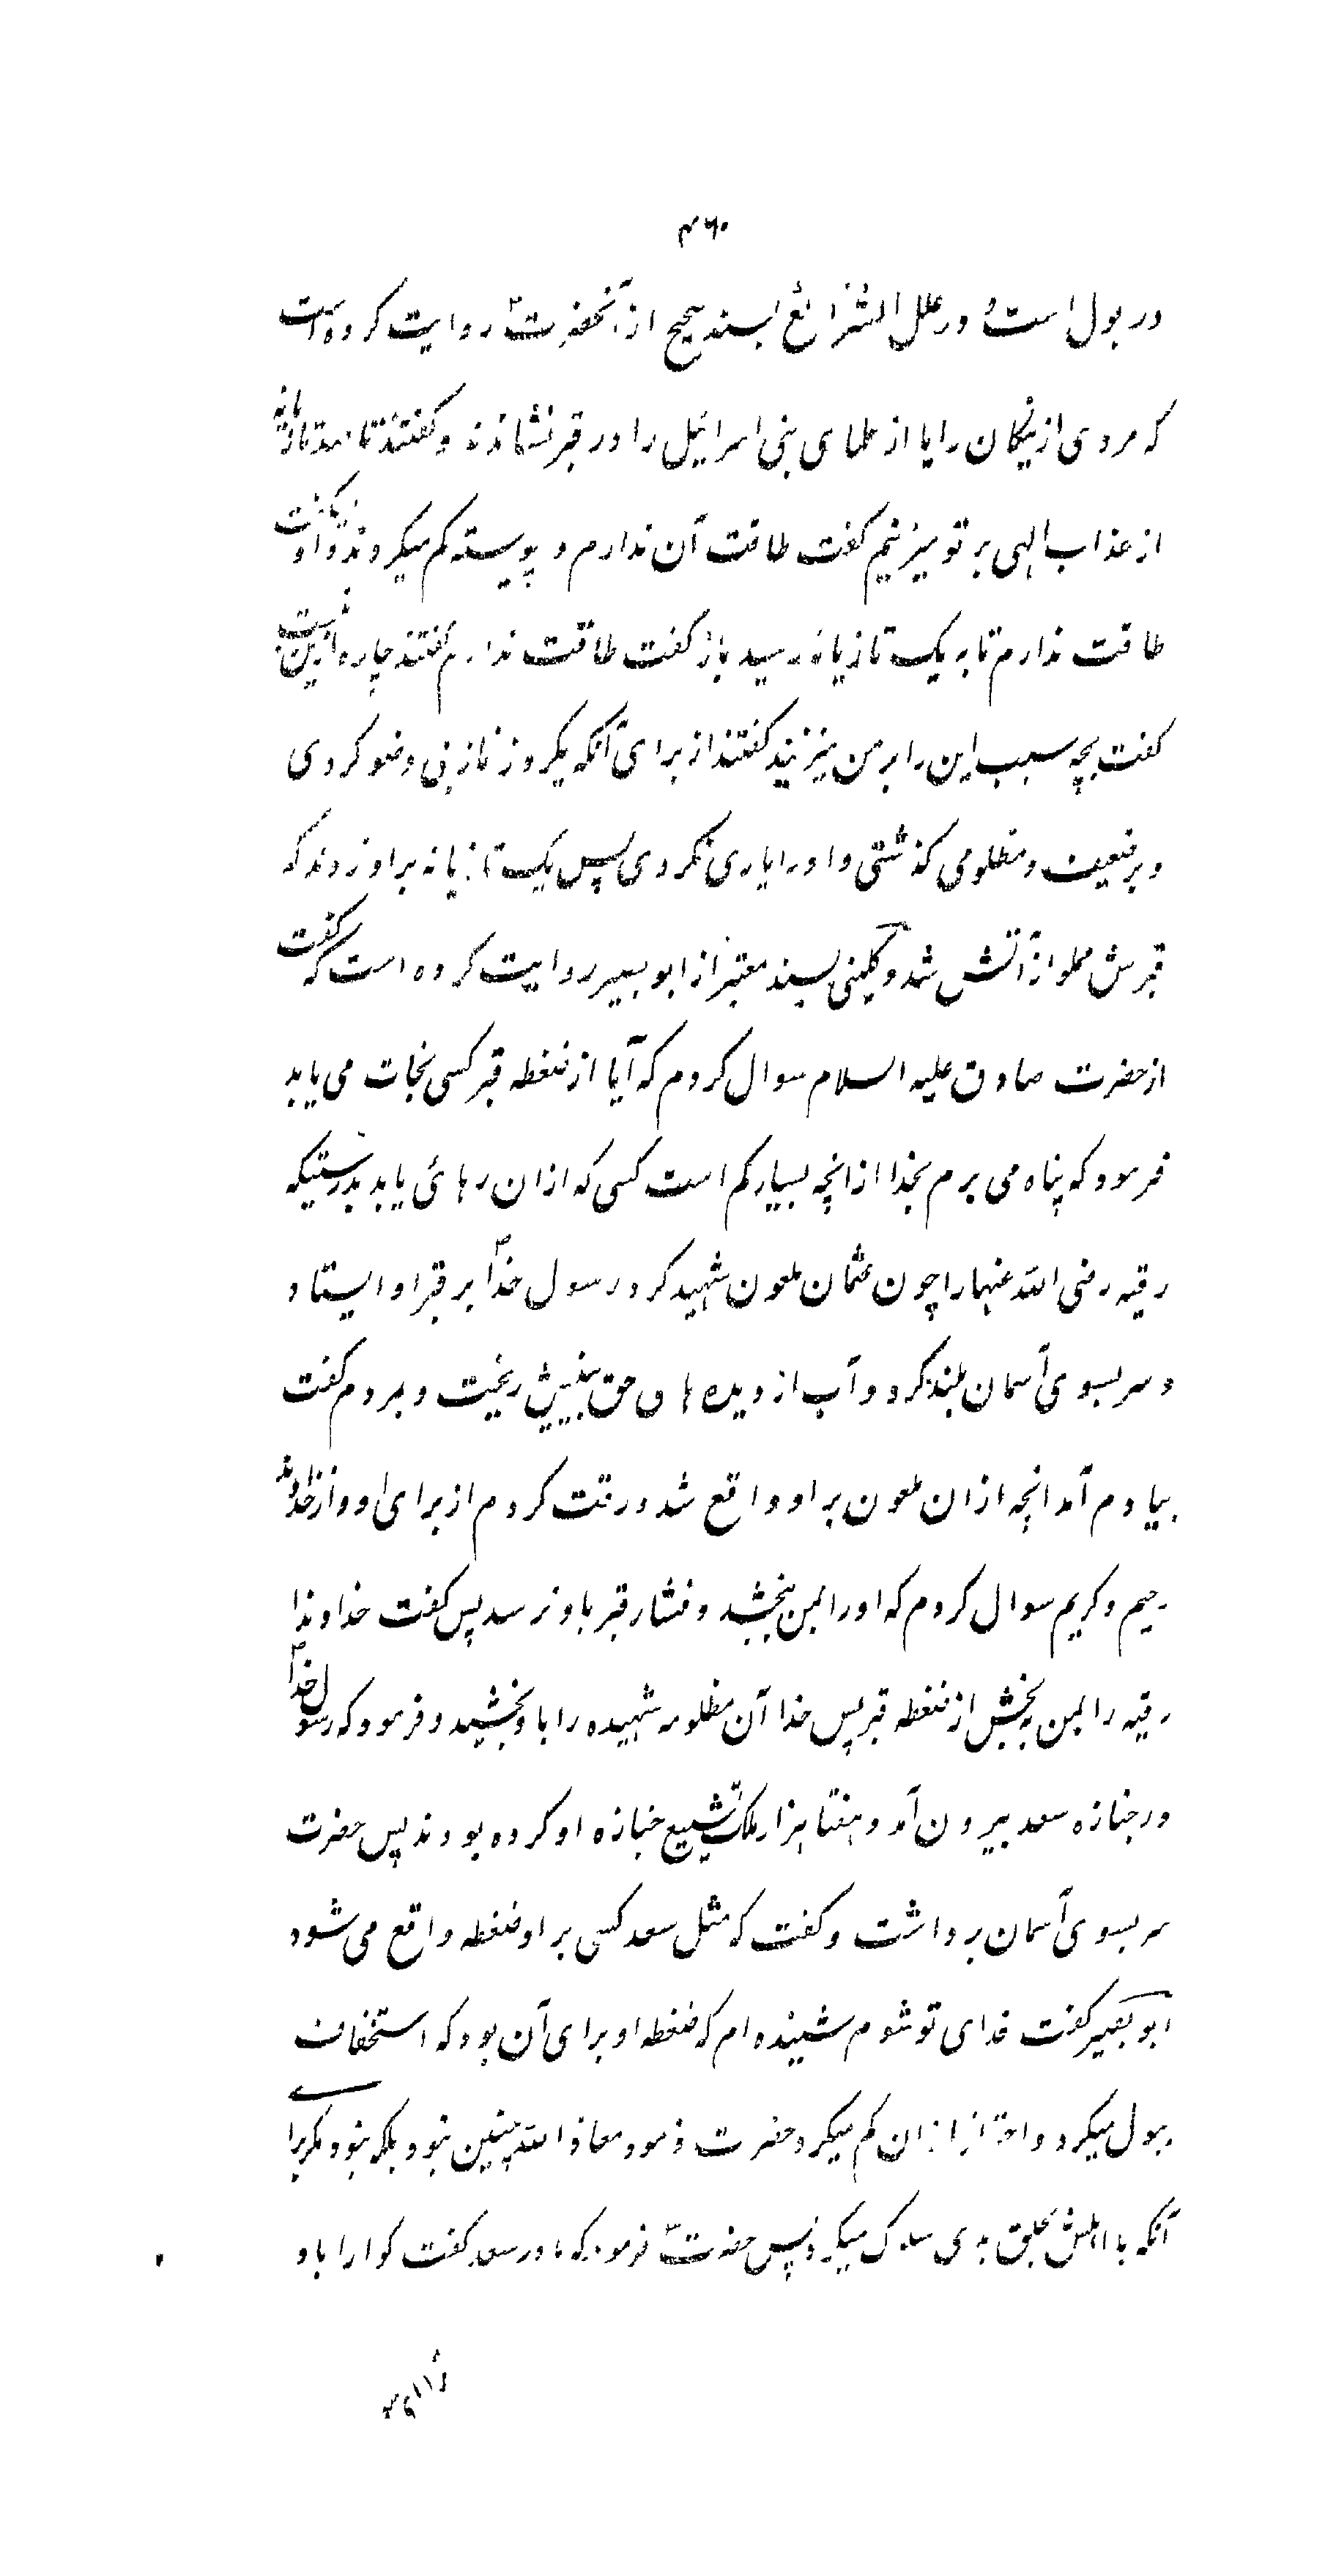 ۴۶۰
در بول است و در علل الشرائع بسند صحیح از آنحضرتؑ روایت کرده است
که مردی از نیکان را یا از علمای بنی اسرائیل را در قبر نشاندند و گفتند ما صد تازیانه
از عذاب الهی بر تو میزنیم گفت طاقت آن ندارم و پیوسته کم میکردند و او میگفت
طاقت ندارم تا به یک تازیانه رسید باز گفت طاقت ندارم گفتند چاره ازین نیست
گفت بچه سبب این را بر من میزنید گفتند از برای آنکه یکروز نماز بی وضو کردی
و بر ضعیف و مظلومی گذشتی و او را یاری نکردی پس یک تازیانه بر او زدند که
قبرش مملو از آتش شد و کلینی بسند معتبر از ابو بصیر روایت کرده است که گفت
از حضرت صادق علیه السلام سوال کردم که آیا از ضغطه قبر کسی نجات می یابد
فرمود که پناه می برم بخدا از انچه بسیار کم است کسی که از ان رهائی یابد بدرستیکه
رقیه رضی الله عنها را چون عثمان ملعون شهید کرد رسول خداؐ بر قبر او ایستاد
و سر بسوی آسمان بلند کرد و آب از دیده های حق بینش ریخت و بمردم گفت
بیادم آمد انچه از ان ملعون بر او واقع شد و رقت کردم از برای او و از خداوند
رحیم و کریم سوال کردم که او را بمن ببخشد و فشار قبر باو نرسد پس گفت خداوندا
رقیه را بمن به بخش از ضغطه قبر پس خدا آن مظلومه شهیده را باو بخشید و فرمود که رسول خداؐ
در جنازه سعد بیرون آمد و هفتاد هزار ملک تشییع جنازه او کرده بودند پس حضرت
سر بسوی آسمان برداشت و گفت که مثل سعد کسی بر او ضغطه واقع می شود
ابو بصیر گفت فدای تو شوم شنیده ام که ضغطه او برای آن بود که استخفاف
ببول میکرد و احتراز از ان کم میکرد حضرت فرمود معاذ الله چنین نبود بلکه نبود مگر برای
آنکه با اهلش بخلق بدی سلوک میکرد پس حضرتؑ فرمود که مادر سعد گفت گوارا باد